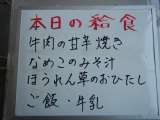 本日の給食
牛肉の甘辛焼き
なめこのみそ汁
ほうれん草のおひたし
ご飯・牛乳